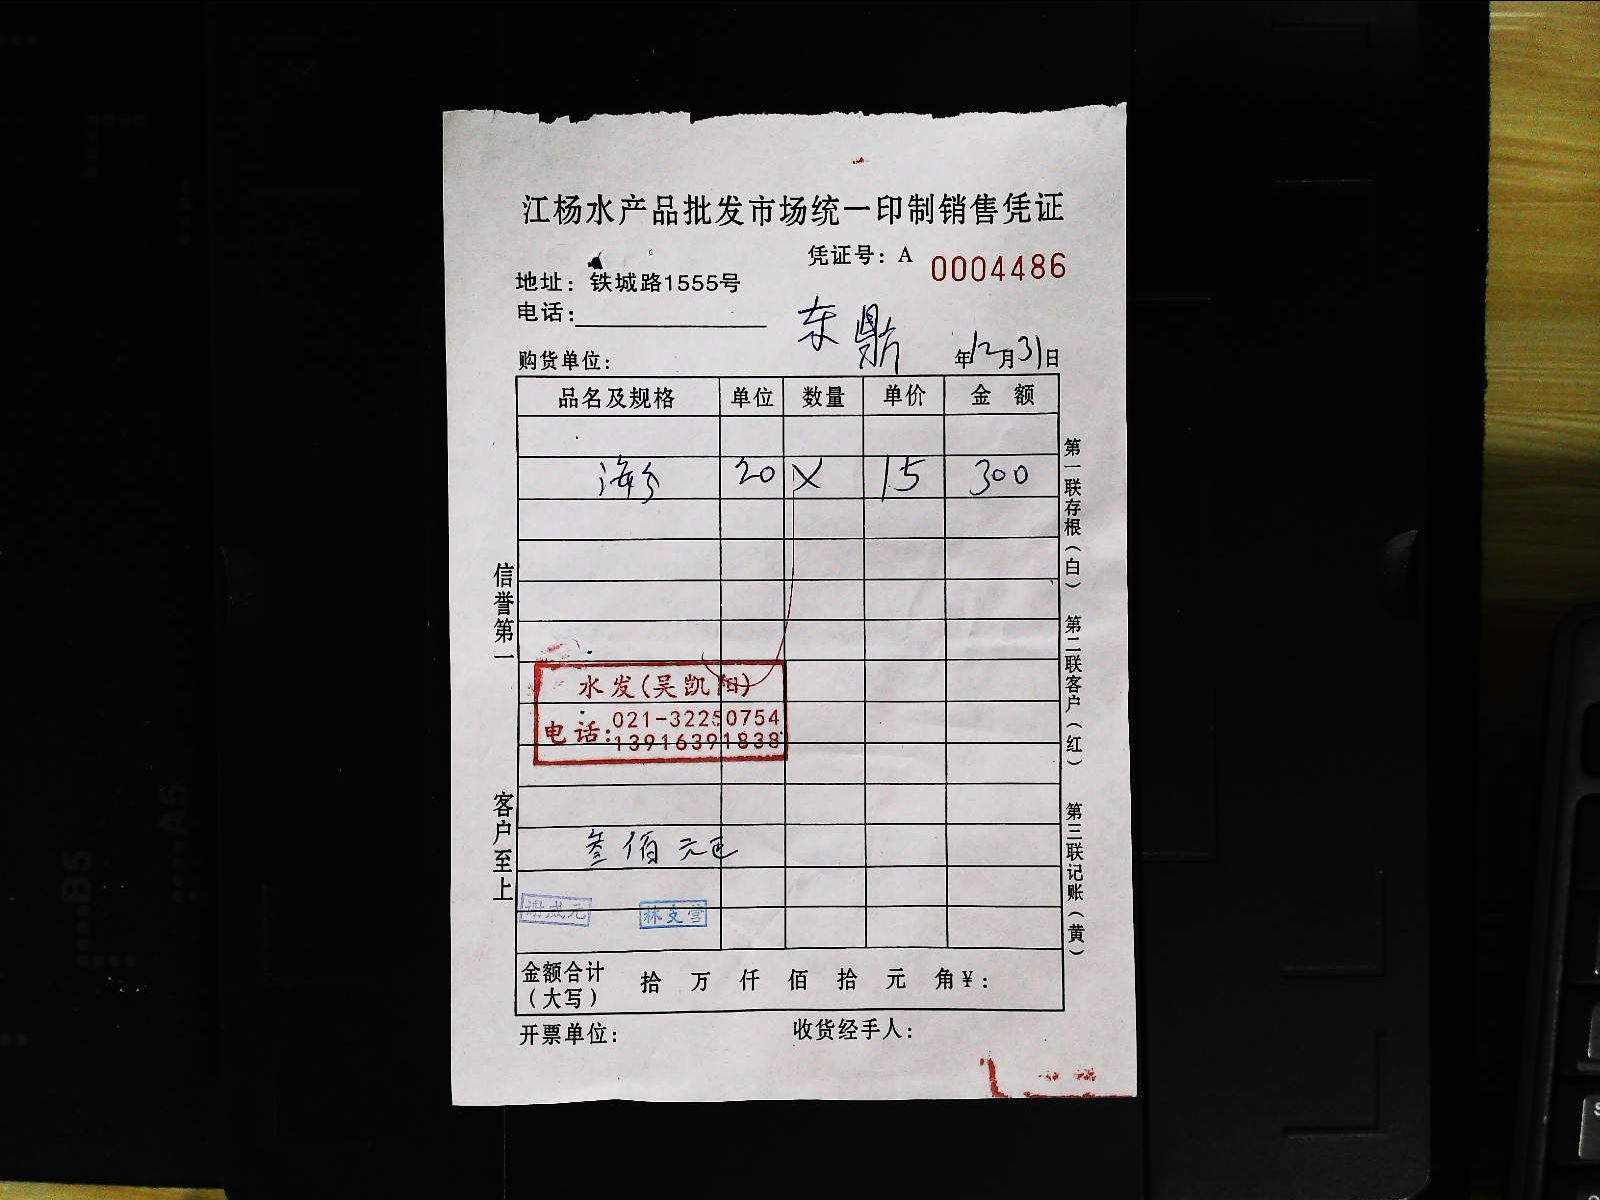 江杨水产品批发市场统一印制销售凭证
凭证号：A 0004486
地址：铁城路1555号
电话：
东鼎
购货单位： 年12月31日
品名及规格 单位 数量 单价 金额
海参 20 X 15 300
水发(吴凯阳)
电话：021-32250754
13916391838
叁佰元
谢成元 林支营
金额合计（大写） 拾 万 仟 佰 拾 元 角¥：
开票单位： 收货经手人：
信誉第一
客户至上
第一联存根（白）
第二联客户（红）
第三联记账（黄）
B5
A5